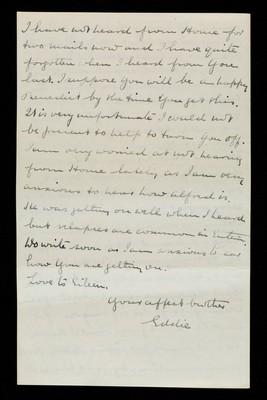 I have not heard from Home for
two mails now and I have quite
forgotten when I heard from you
last. I suppose you will be a happy
Benedict by the time you get this.
It is very unfortunate I could not
be present to help to turn you off.
I am very worried at not hearing
from Home lately as I am very
anxious to hear how Alfred is.
He was getting on well when I heard
but relapses are common in Enteric.
Do write soon as I am anxious to hear
how you are getting on.
Love to Eileen.
Your affect brother
Eddie